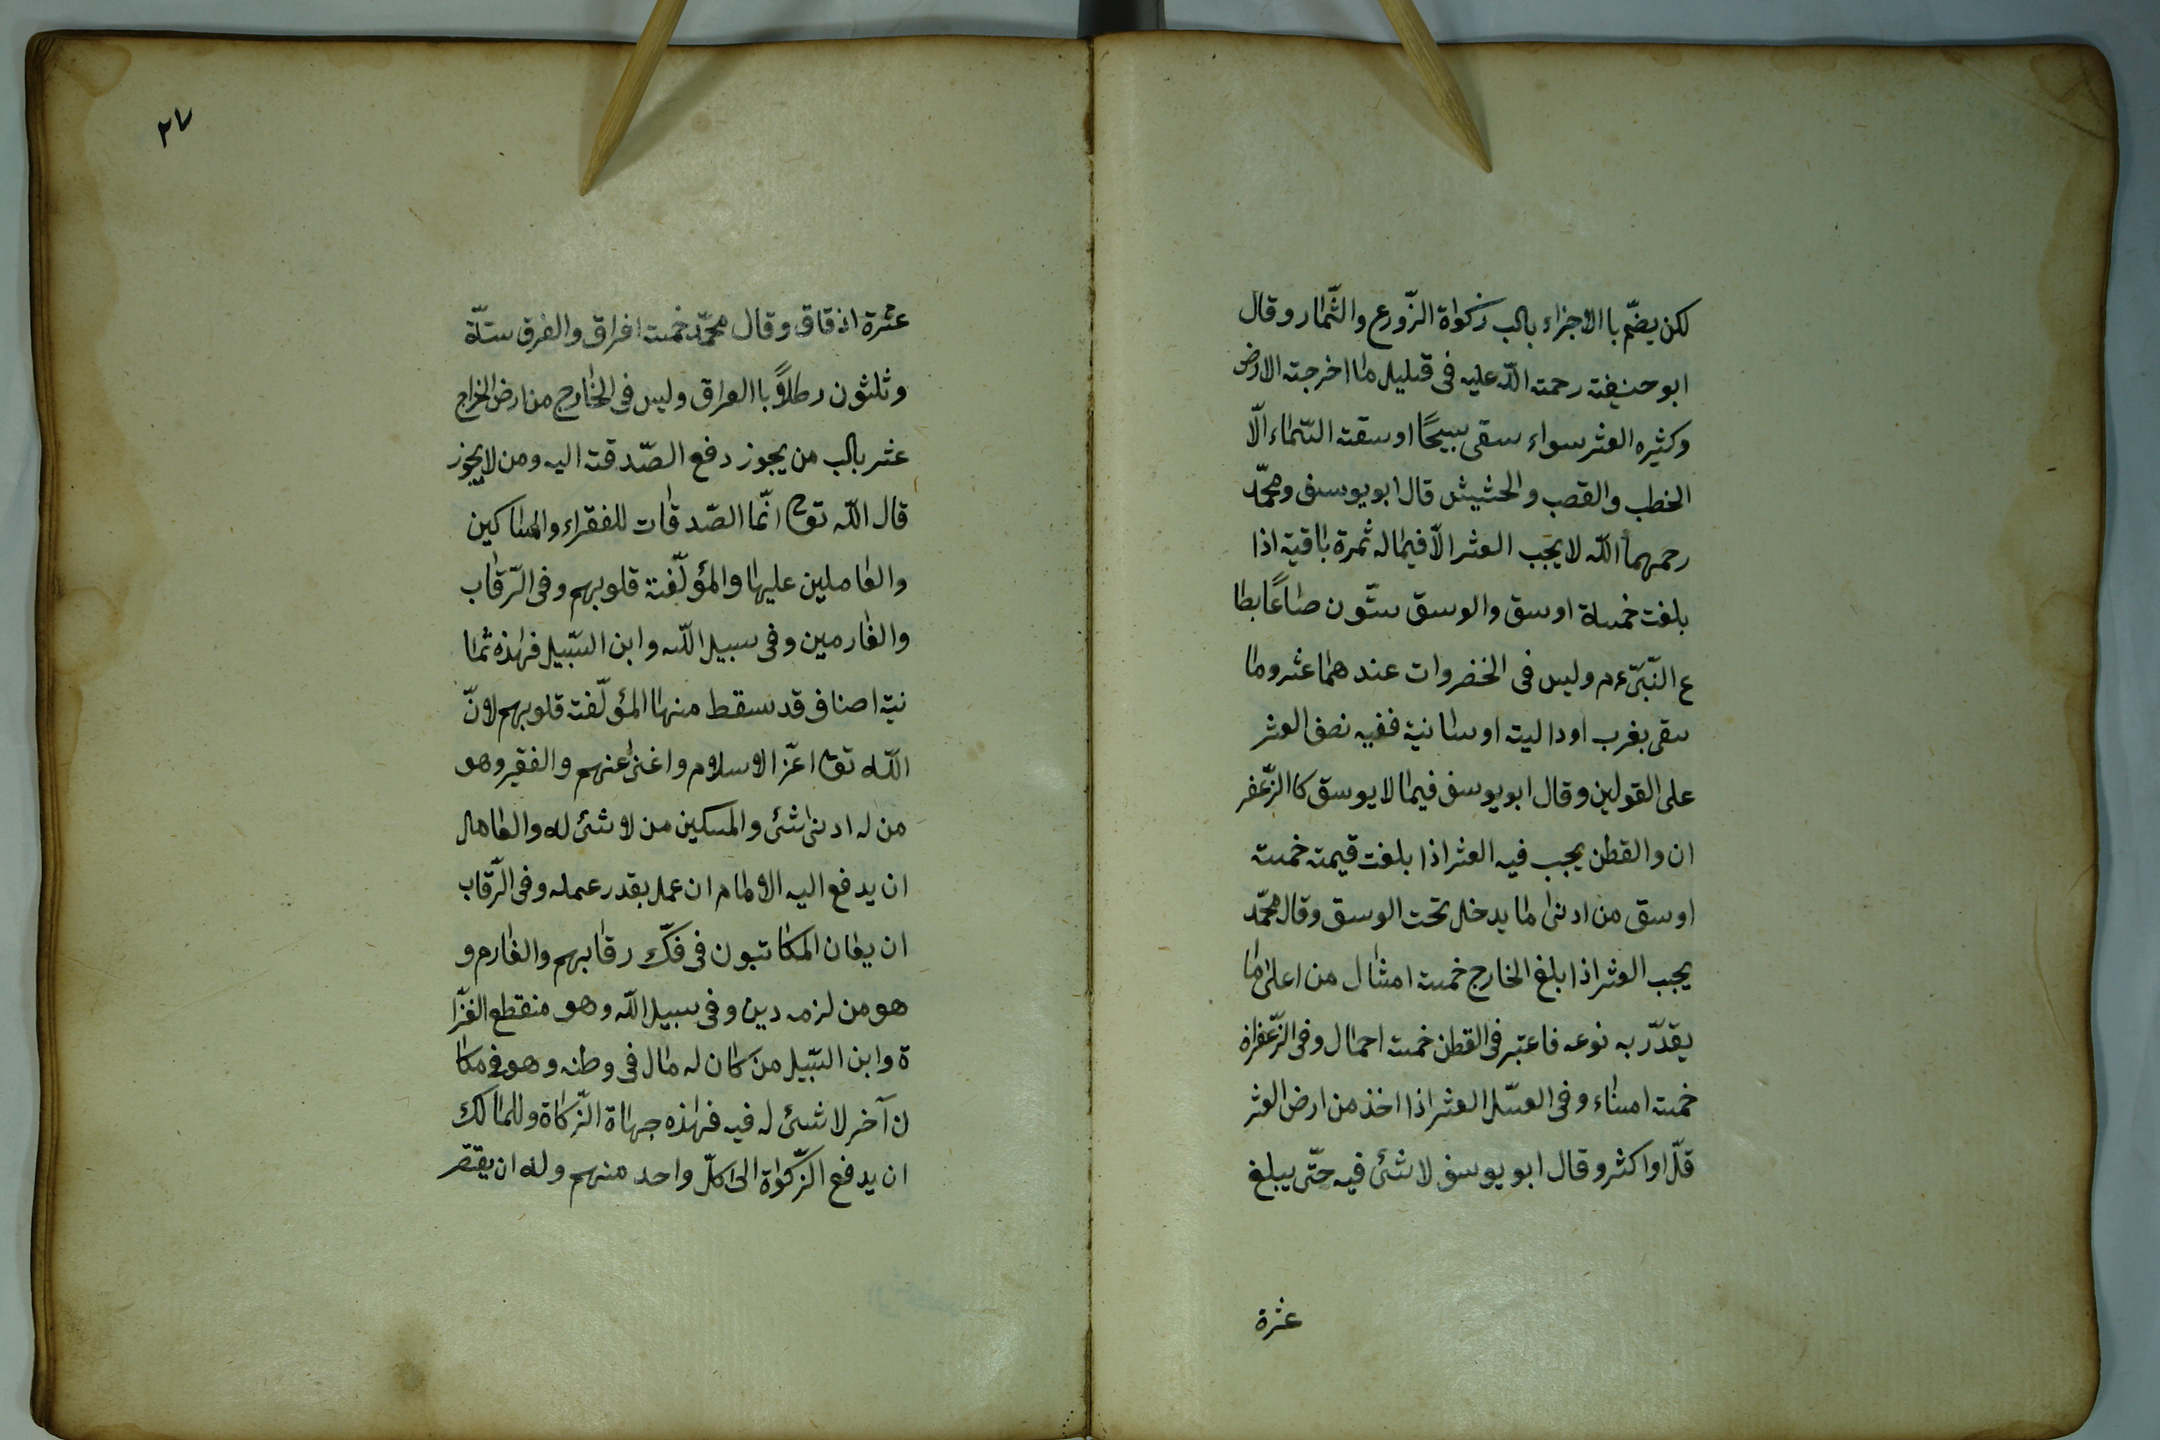 لكن يضمّ باالاجزاء باب زكوٰة الزّورع والثّمار وقال
ابو حنيفته رحمته اللّه عليه فى قىليل ما اخرجته الارض
وكثيره العشر سواء سقى سيحًا او سقته السّماء الّا
الخطب والقصب والحشيش قال ابو يوسف ومحمّد
رحمهما اللّه لا يجب العشر الّا فيما له ثمرة باقية اذا
بلغت خمسة اوسق والوسق ستّون صاعًا بصا
ع النّبىّ ءم وليس فى الخضروات عندهما عشر وما
سقى بغرب او دالية او سانية ففيه نصف العشر
على القولين وقال ابو يوسف فيما لا يوسق كاالزّعفر
ان والقطن يجب فيه العشر اذا بلغت قيمته خمسته
اوسق من ادنىٰ ما يدخل تحت الوسق وقال محمّد
يجب العشر اذا بلغ الخارج خمسته امثال من اعلىٰ ما
يقدّر به نوعه فاعتبر فى القطن خمسته احمال وفى الزّعفران
خمسته امناء وفى العسل العشر اذا اخذ من ارض العشر
قلّ او اكثر وقال ابو يوسف لا شئ فيه حتّى يبلغ
عشرة
٢٧
عشرة اذقاق وقال محمّد خمسته افراق والفرق ستّة
وثلثون رطلاً باالعراق وليس فى الخارج من ارض الخراج
عشر باب من يجوز دفع الصّدقته اليه ومن لا يجوز
قال اللّه تعا انّما الصّدقات للفقراء والمساكين
والعاملين عليها والمؤلّفتة قلوبهم وفى الرّقاب
والغارمين وفى سبيل اللّه وابن السّبيل فهٰذه ثما
نية اصناف قد سقط منها المؤلّفته قلوبهم لانّ
اللّه تعا اعزّ الاسلام واغنىٰ عنهم والفقير وهو
من له ادنىٰ شئ والمسكين من لا شئ له والعامل
ان يدفع اليه الامام ان عمل بقدر عمله وفى الرّقاب
ان يعان المكاتبون فى فكّ رقابهم والغارم و
هو من لزمه دين وفى سبيل اللّه وهو منقطع الغزّا
ة وابن السّبيل من كان له مال فى وطنه وهو فى مكا
ن آخر لا شئ له فيه فهٰذه جهاة الزّكاة وللمالك
ان يدفع الزّكوٰة الىٰ كلّ واحد منهم وله ان يقتصر